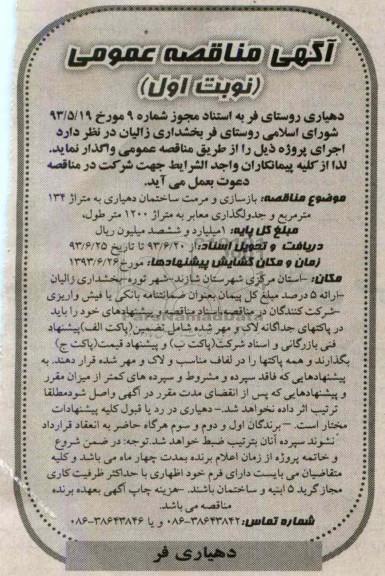 آگهی مناقصه عمومی
(نوبت اول)
دهیاری روستای فر به استناد مجوز شماره ۹ مورخ ۹۳/۵/۱۹
شورای اسلامی روستای فر بخشداری زالیان در نظر دارد
اجرای پروژه ذیل را از طریق مناقصه عمومی واگذار نماید.
لذا از کلیه پیمانکاران واجد الشرایط جهت شرکت در مناقصه
دعوت بعمل می آید.
موضوع مناقصه: بازسازی و مرمت ساختمان دهیاری به متراژ ۱۳۴
مترمربع و جدولگذاری معابر به متراژ ۱۲۰۰ متر طول،
مبلغ کل پایه: ۱میلیارد و ششصد میلیون ریال
دریافت و تحویل اسناد: از ۹۳/۶/۲۰ تا تاریخ ۹۳/۶/۲۵
زمان و مکان گشایش پیشنهادها: مورخ ۱۳۹۳/۶/۲۶
مکان: -استان مرکزی شهرستان شازند-شهر توره-بخشداری زالیان
-ارائه ۵ درصد مبلغ کل پیمان بعنوان ضمانتنامه بانکی یا فیش واریزی
-شرکت کنندگان در مناقصه، اسناد مناقصه و پیشنهادهای خود را باید
در پاکتهای جداگانه لاک و مهر شده شامل تضمین(پاکت الف)پیشنهاد
فنی بازرگانی و اسناد شرکت(پاکت ب) و پیشنهاد قیمت(پاکت ج)
بگذارند و همه پاکتها را در لفاف مناسب و لاک و مهر شده قرار دهند. به
پیشنهادهایی که فاقد سپرده و مشروط و سپرده های کمتر از میزان مقرر
و پیشنهادهایی که پس از انقضای مدت مقرر در آگهی واصل شودمطلقا
ترتیب اثر داده نخواهد شد.- دهیاری در رد یا قبول کلیه پیشنهادات
مختار است. - برندگان اول و دوم و سوم هرگاه حاضر به انعقاد قرارداد
نشوند سپرده آنان بترتیب ضبط خواهد شد.توجه: در ضمن شروع
و خاتمه پروژه از زمان اعلام برنده بمدت چهار ماه می باشد و کلیه
متقاضیان می بایست دارای فرم خود اظهاری با حداکثر ظرفیت کاری
مجاز گرید ۵ ابنیه و ساختمان باشند. -هزینه چاپ آگهی بعهده برنده
مناقصه می باشد.
شماره تماس: ۳۸۶۴۳۸۴۲-۰۸۶ و یا ۳۸۶۴۳۸۴۶-۰۸۶
دهیاری فر